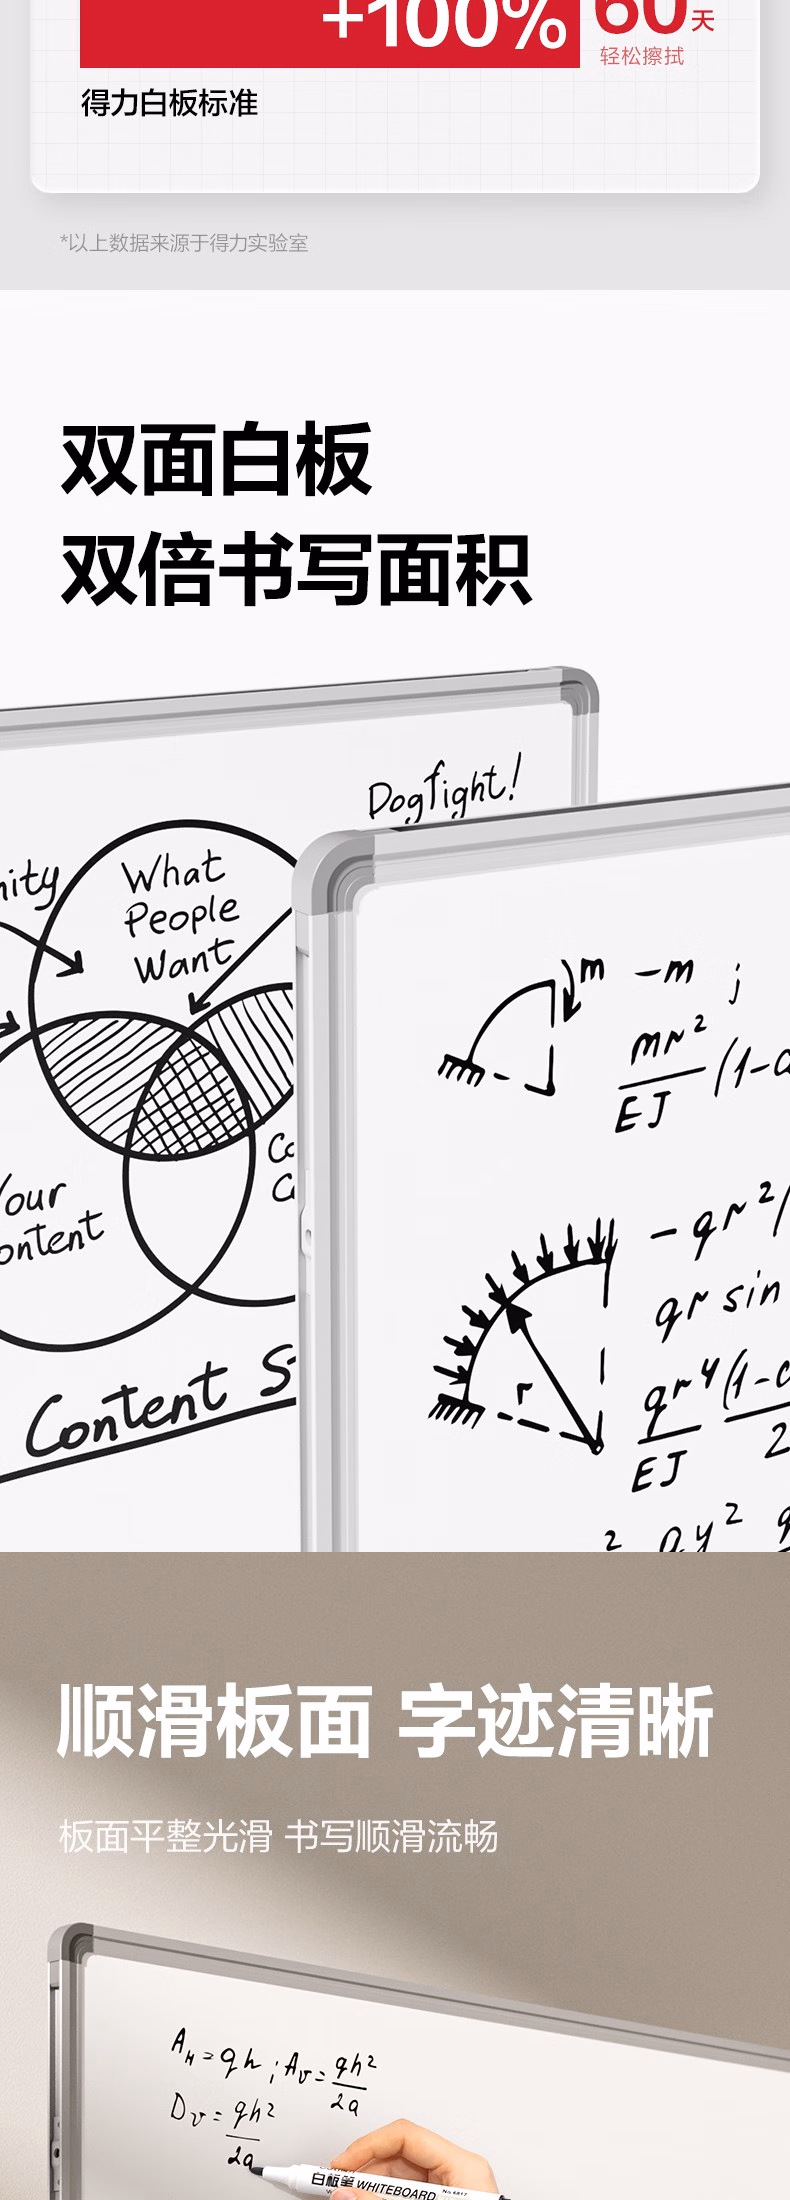 +100% 60天
轻松擦拭
得力白板标准
*以上数据来源于得力实验室
双面白板
双倍书写面积
Dogfight!
What
People
Want
Content
m -m j
mr²
EJ
-qr²/
qr sin
r
qr⁴
EJ
2
顺滑板面 字迹清晰
板面平整光滑 书写顺滑流畅
Aₕ=qh; Aᵥ=qh²/2a
Dᵥ=qh²/2a
白板笔 WHITEBOARD